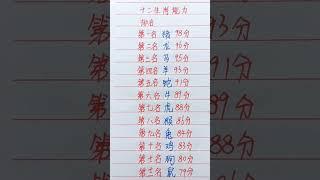 十二生肖能力
排名
第一名 猪 98分
第二名 龙 96分
第三名 马 95分
第四名 羊 93分
第五名 蛇 91分
第六名 牛 89分
第七名 虎 88分
第八名 猴 86分
第九名 兔 84分
第十名 鸡 83分
第十一名 狗 80分
第十二名 鼠 79分